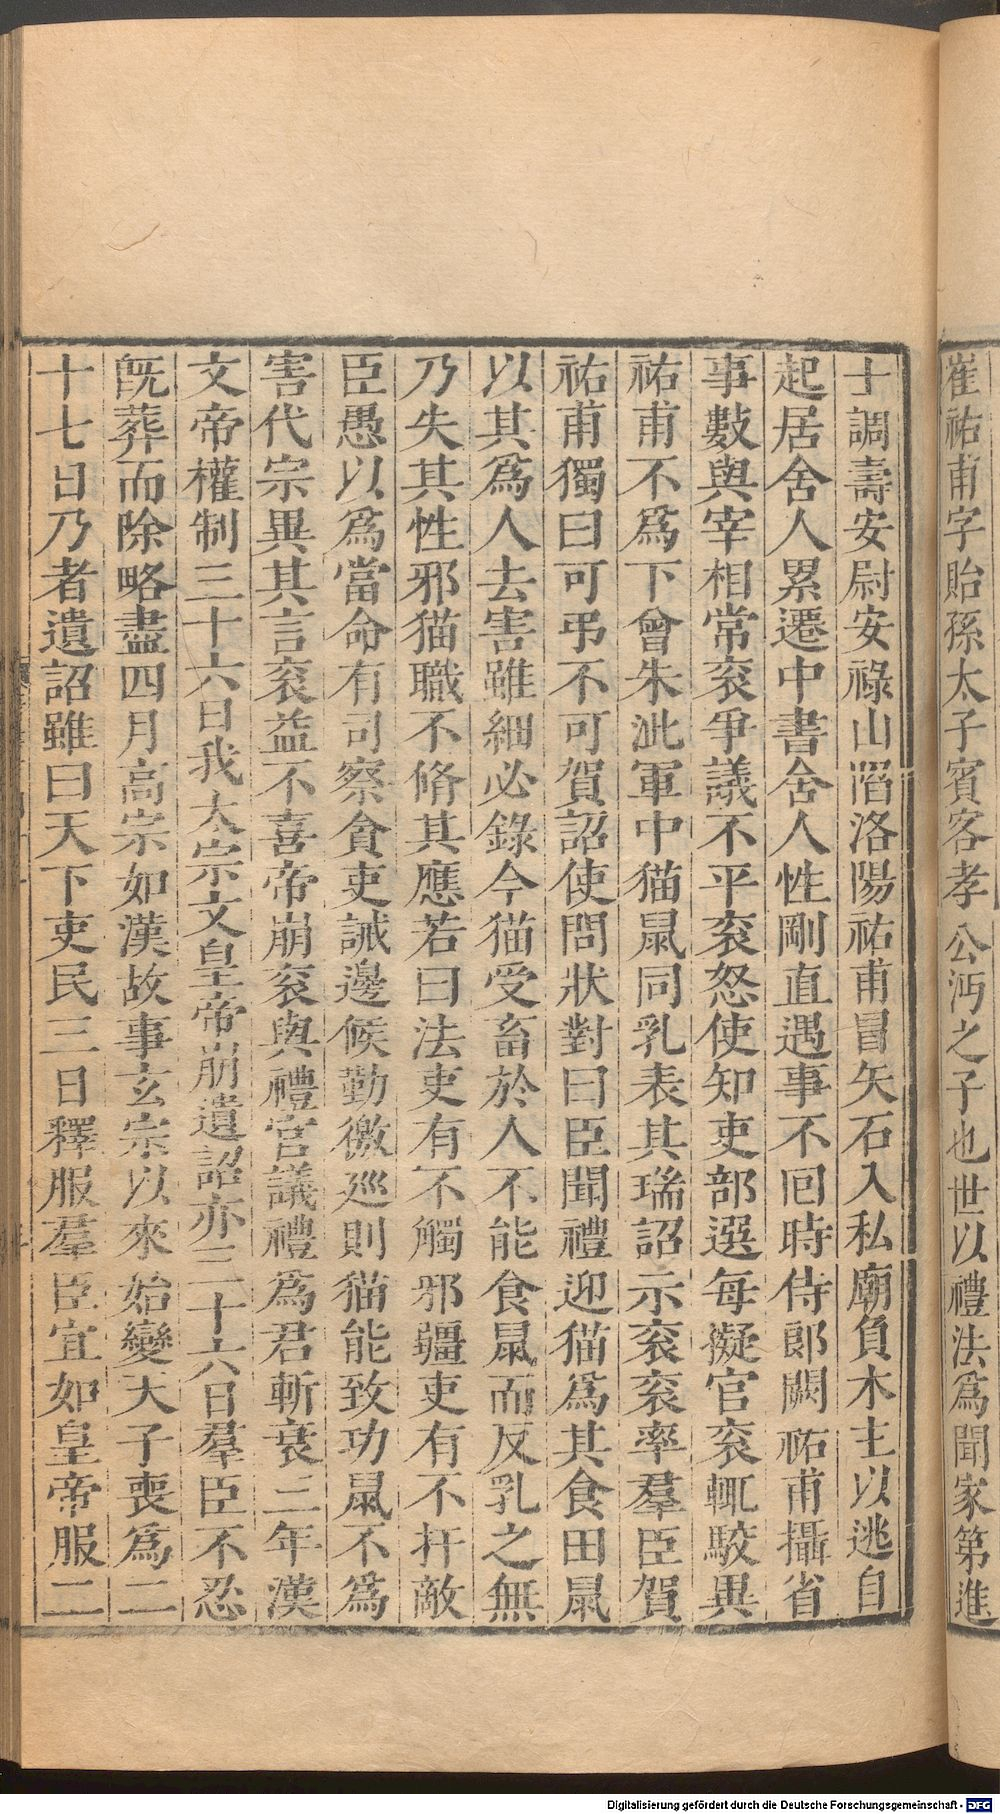 崔祐甫字貽孫太子賓客孝公沔之子也世以禮法爲聞家第進
士調壽安尉安祿山䧟洛陽祐甫冒矢石入私廟負木主以逃自
起居舍人累遷中書舍人性剛直遇事不回時侍郎闕祐甫攝省
事數與宰相常衮爭議不平衮怒使知吏部選每擬官衮輒駮異
祐甫不爲下會朱泚軍中猫䑕同乳表其瑞詔示衮衮率羣臣賀
祐甫獨曰可弔不可賀詔使問狀對曰臣聞禮迎猫爲其食田䑕
以其爲人去害雖細必錄今猫受畜於人不能食䑕而反乳之無
乃失其性邪猫職不脩其應若曰法吏有不觸邪疆吏有不扞敵
臣愚以爲當命有司察貪吏誡邊候勤徼巡則猫能致功䑕不爲
害代宗異其言衮益不喜帝崩衮與禮官議禮爲君斬衰三年漢
文帝權制三十六日我太宗文皇帝崩遺詔亦三十六日羣臣不忍
旣葬而除略盡四月高宗如漢故事玄宗以來始變天子喪爲二
十七日乃者遺詔雖曰天下吏民三日釋服羣臣宜如皇帝服二
Digitalisierung gefördert durch die Deutsche Forschungsgemeinschaft - DFG